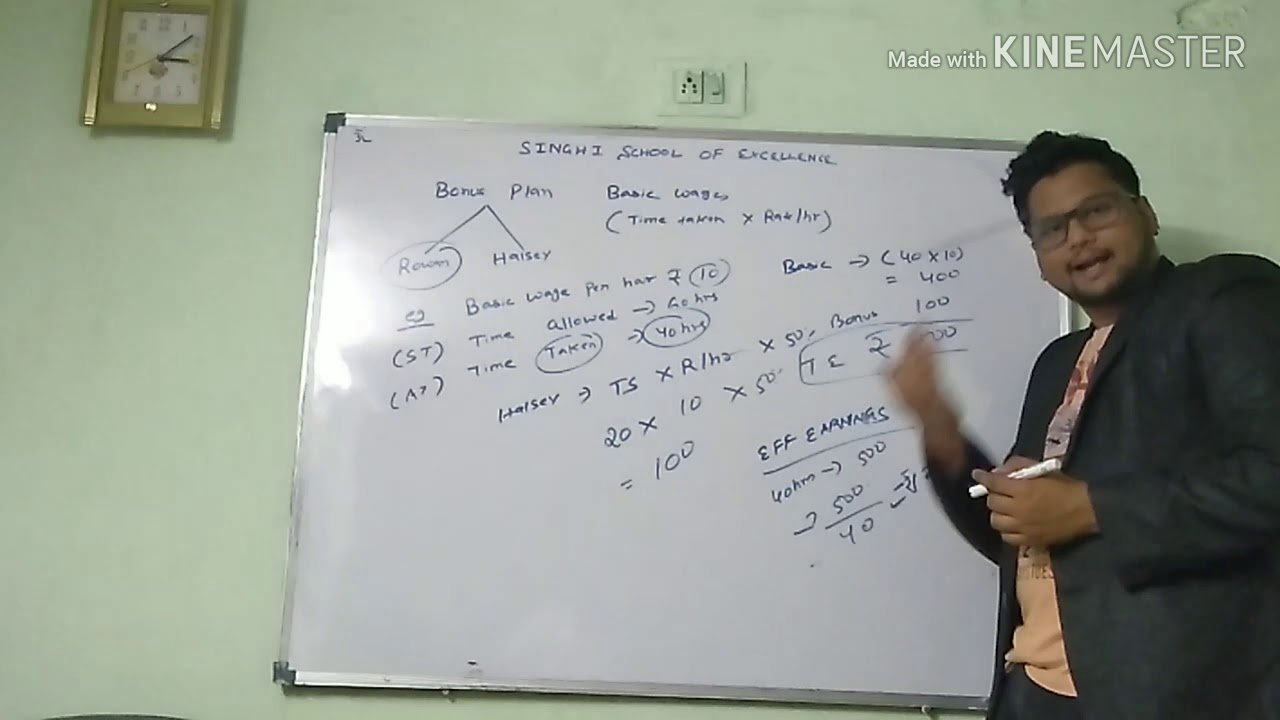 Made with KINEMASTER
SINGHI SCHOOL OF EXCELLENCE
Bonus Plan
Basic wages
(Time taken × Rate/hr)
Rowan Halsey
eg Basic wage per hour ₹ 10
(ST) Time allowed → 60 hrs
(AT) Time Taken → 40 hrs
Halsey → TS × R/hr × 50%
20 × 10 × 50%
= 100
Basic → (40 × 10)
= 400
Bonus 100
TE ₹
EFF EARNINGS
40 hrs → 500
→ 500
40